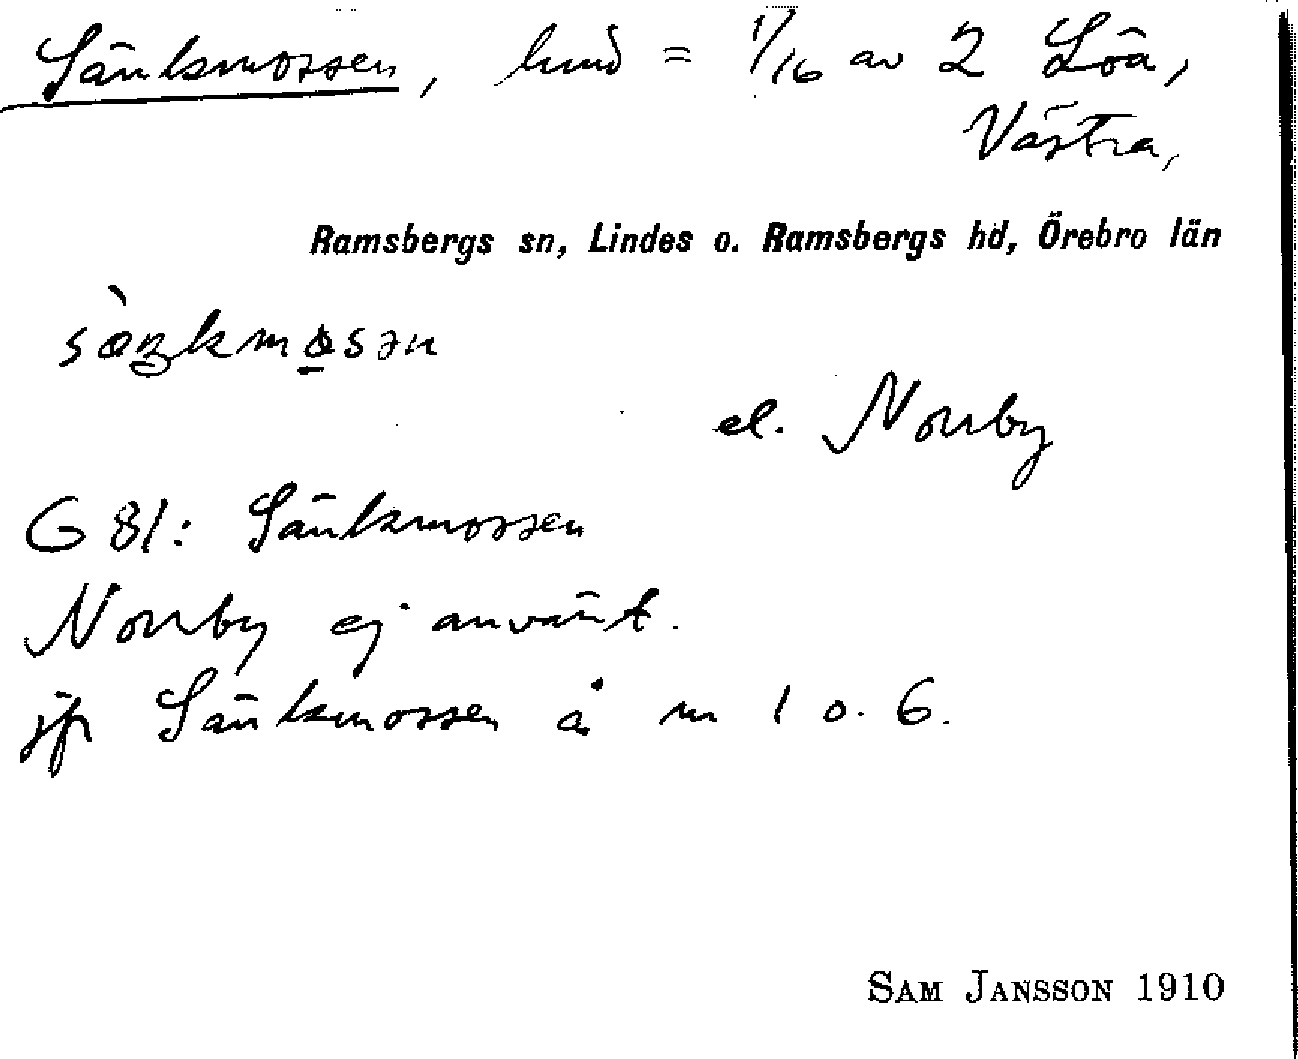 Sänkmossen, hmd = 1/16 av 2 Löa,
Västra,
Ramsbergs sn, Lindes o. Ramsbergs hd, Örebro län
el. Norrby
G 81: Sänkmossen
Norrby ej använt.
jfr Sänkmossen å nr 1 o. 6.
SAM JANSSON 1910